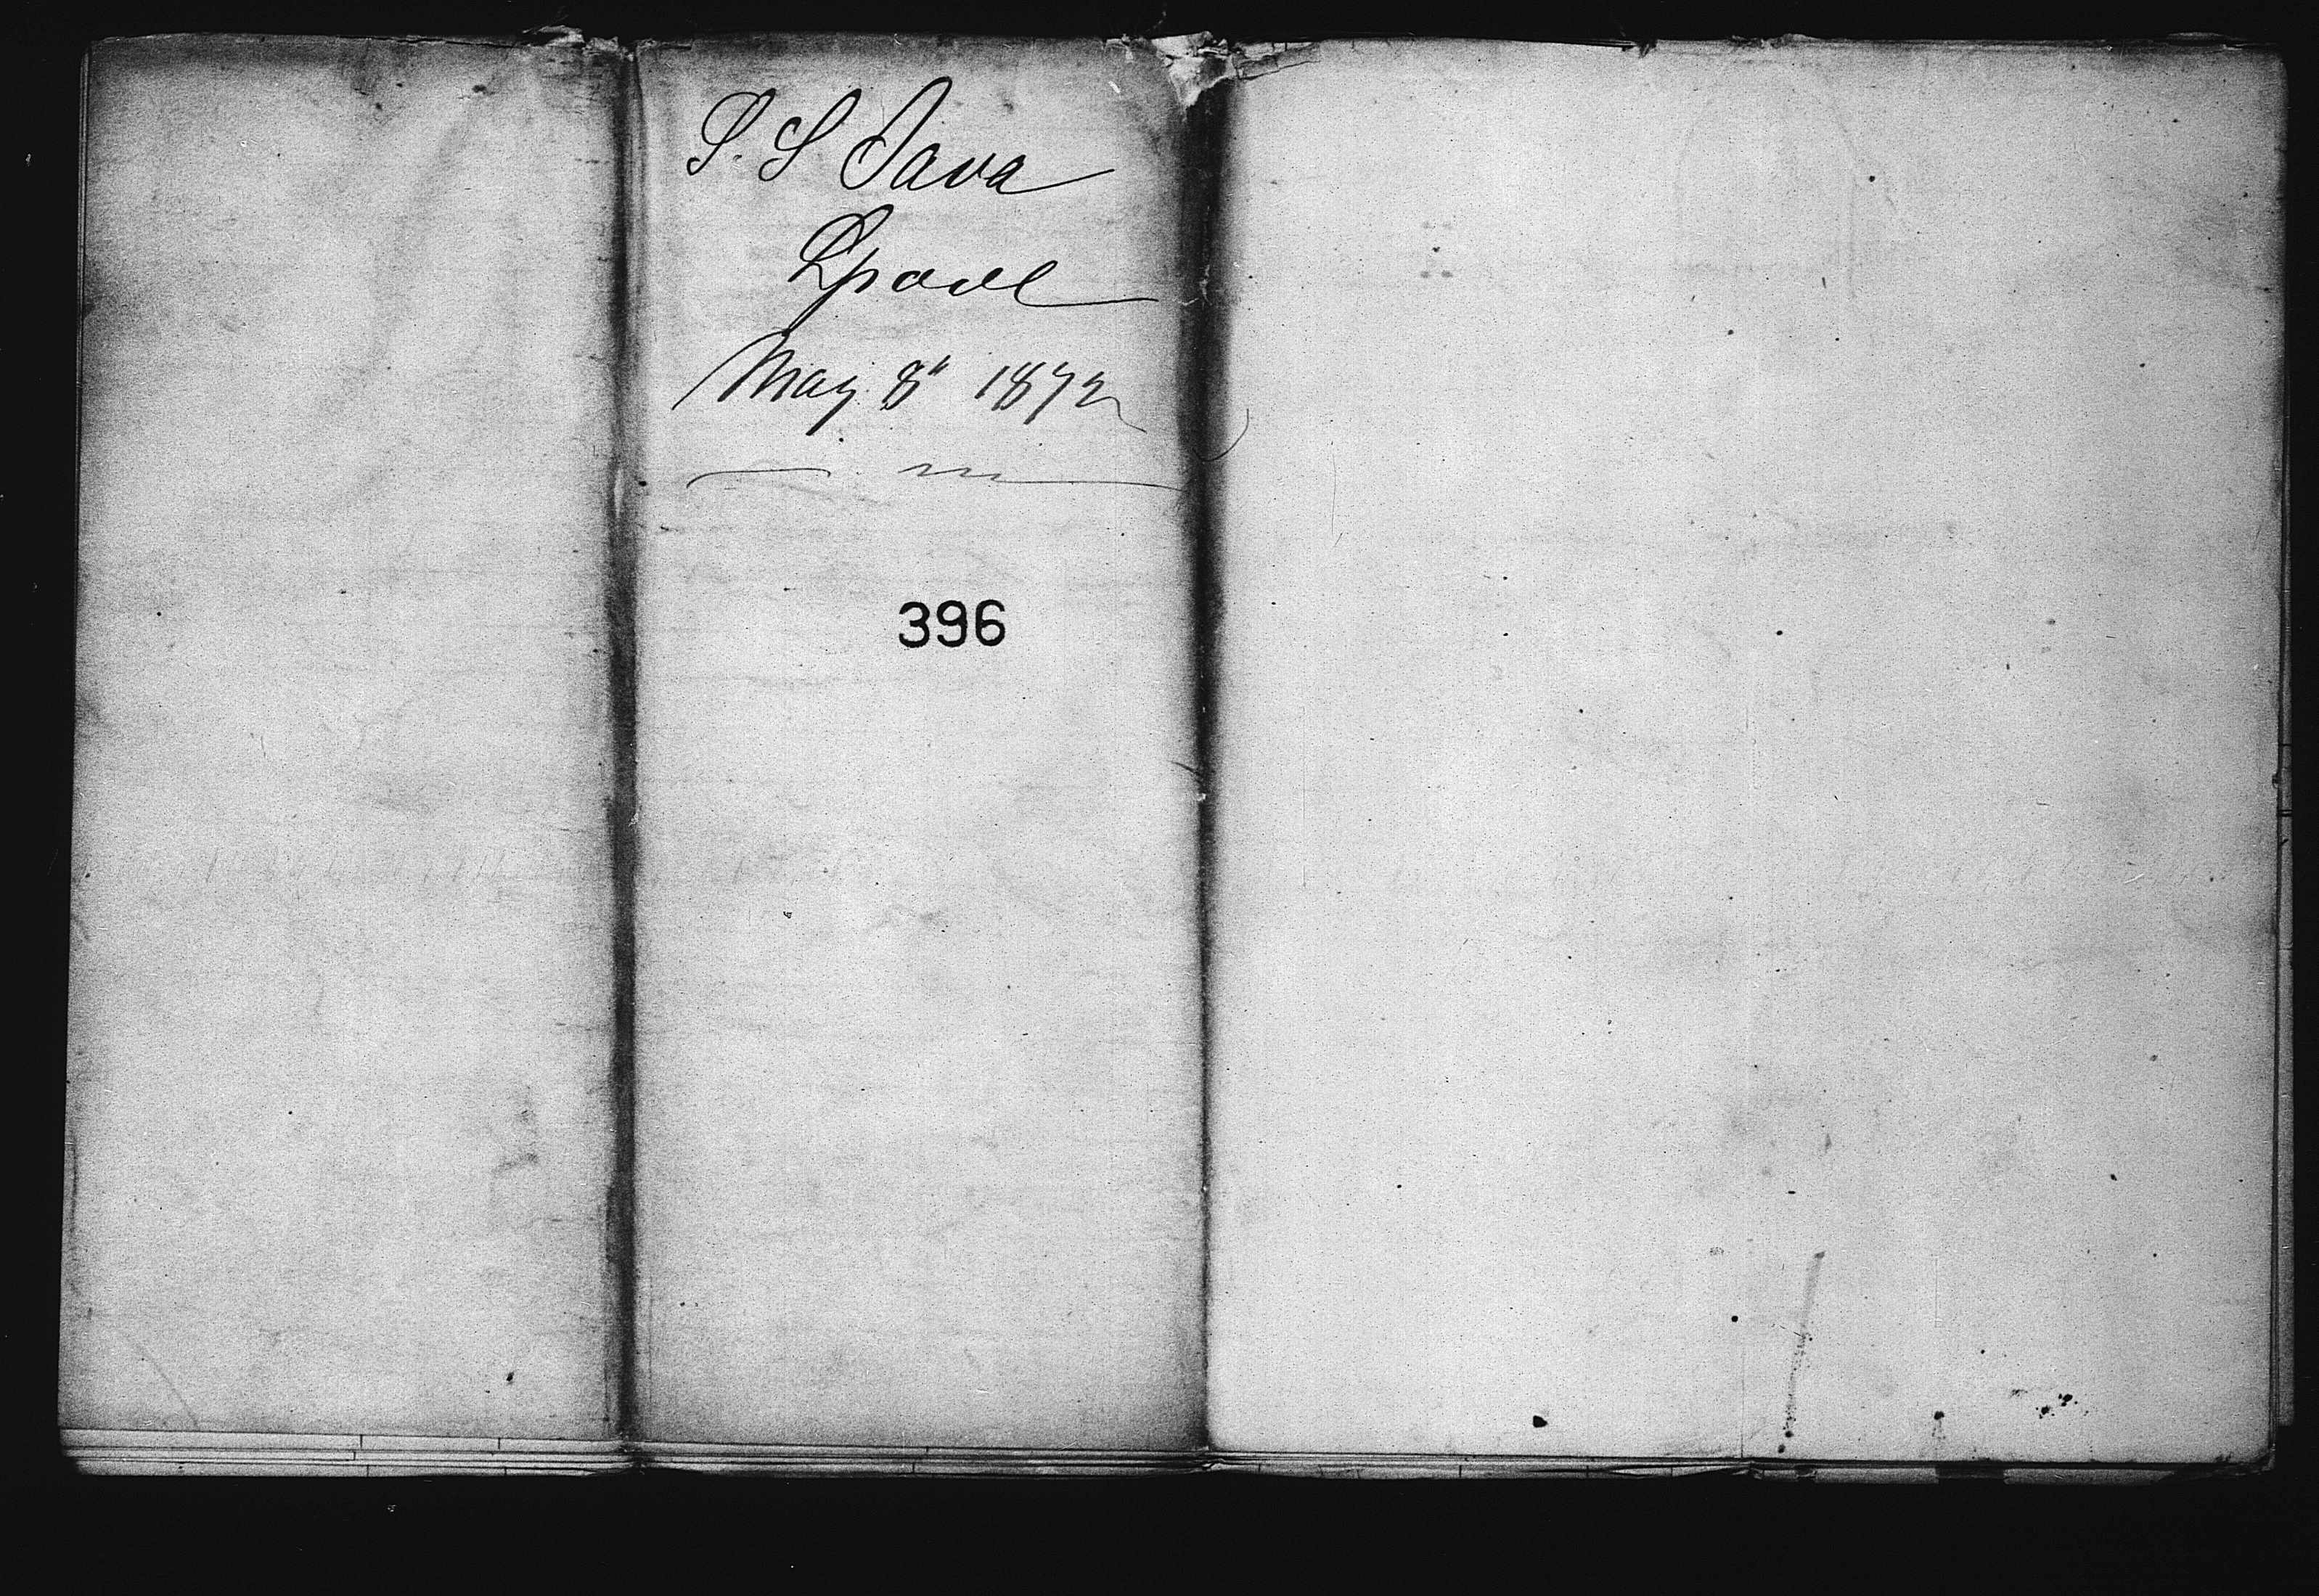 S. S Java
Lpool
May 8" 1872
396